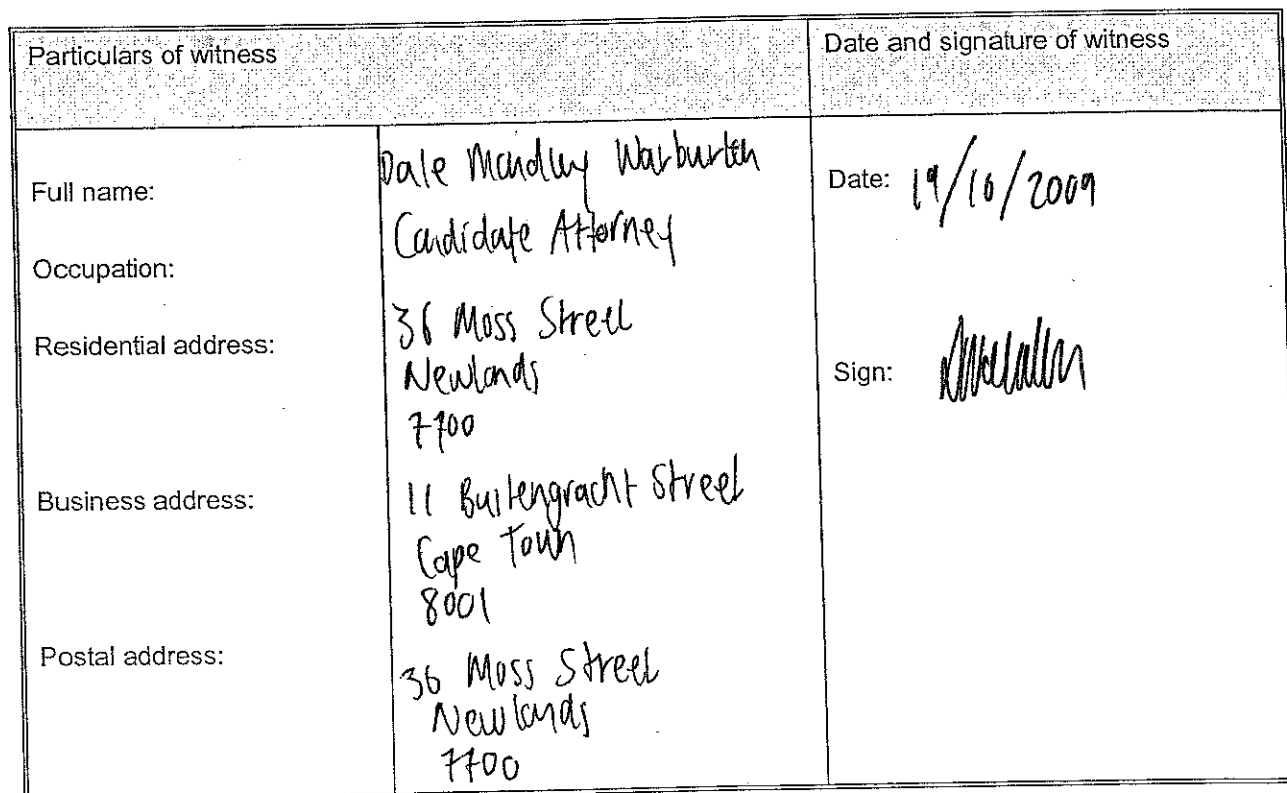 Particulars of witness
Date and signature of witness
Full name:
Dale Warburton
Date: 19/10/2009
Occupation:
Candidate Attorney
Residential address:
36 Moss Street
Newlands
7700
Sign:
Business address:
11 Buitengracht Street
Cape Town
8001
Postal address:
36 Moss Street
Newlands
7700